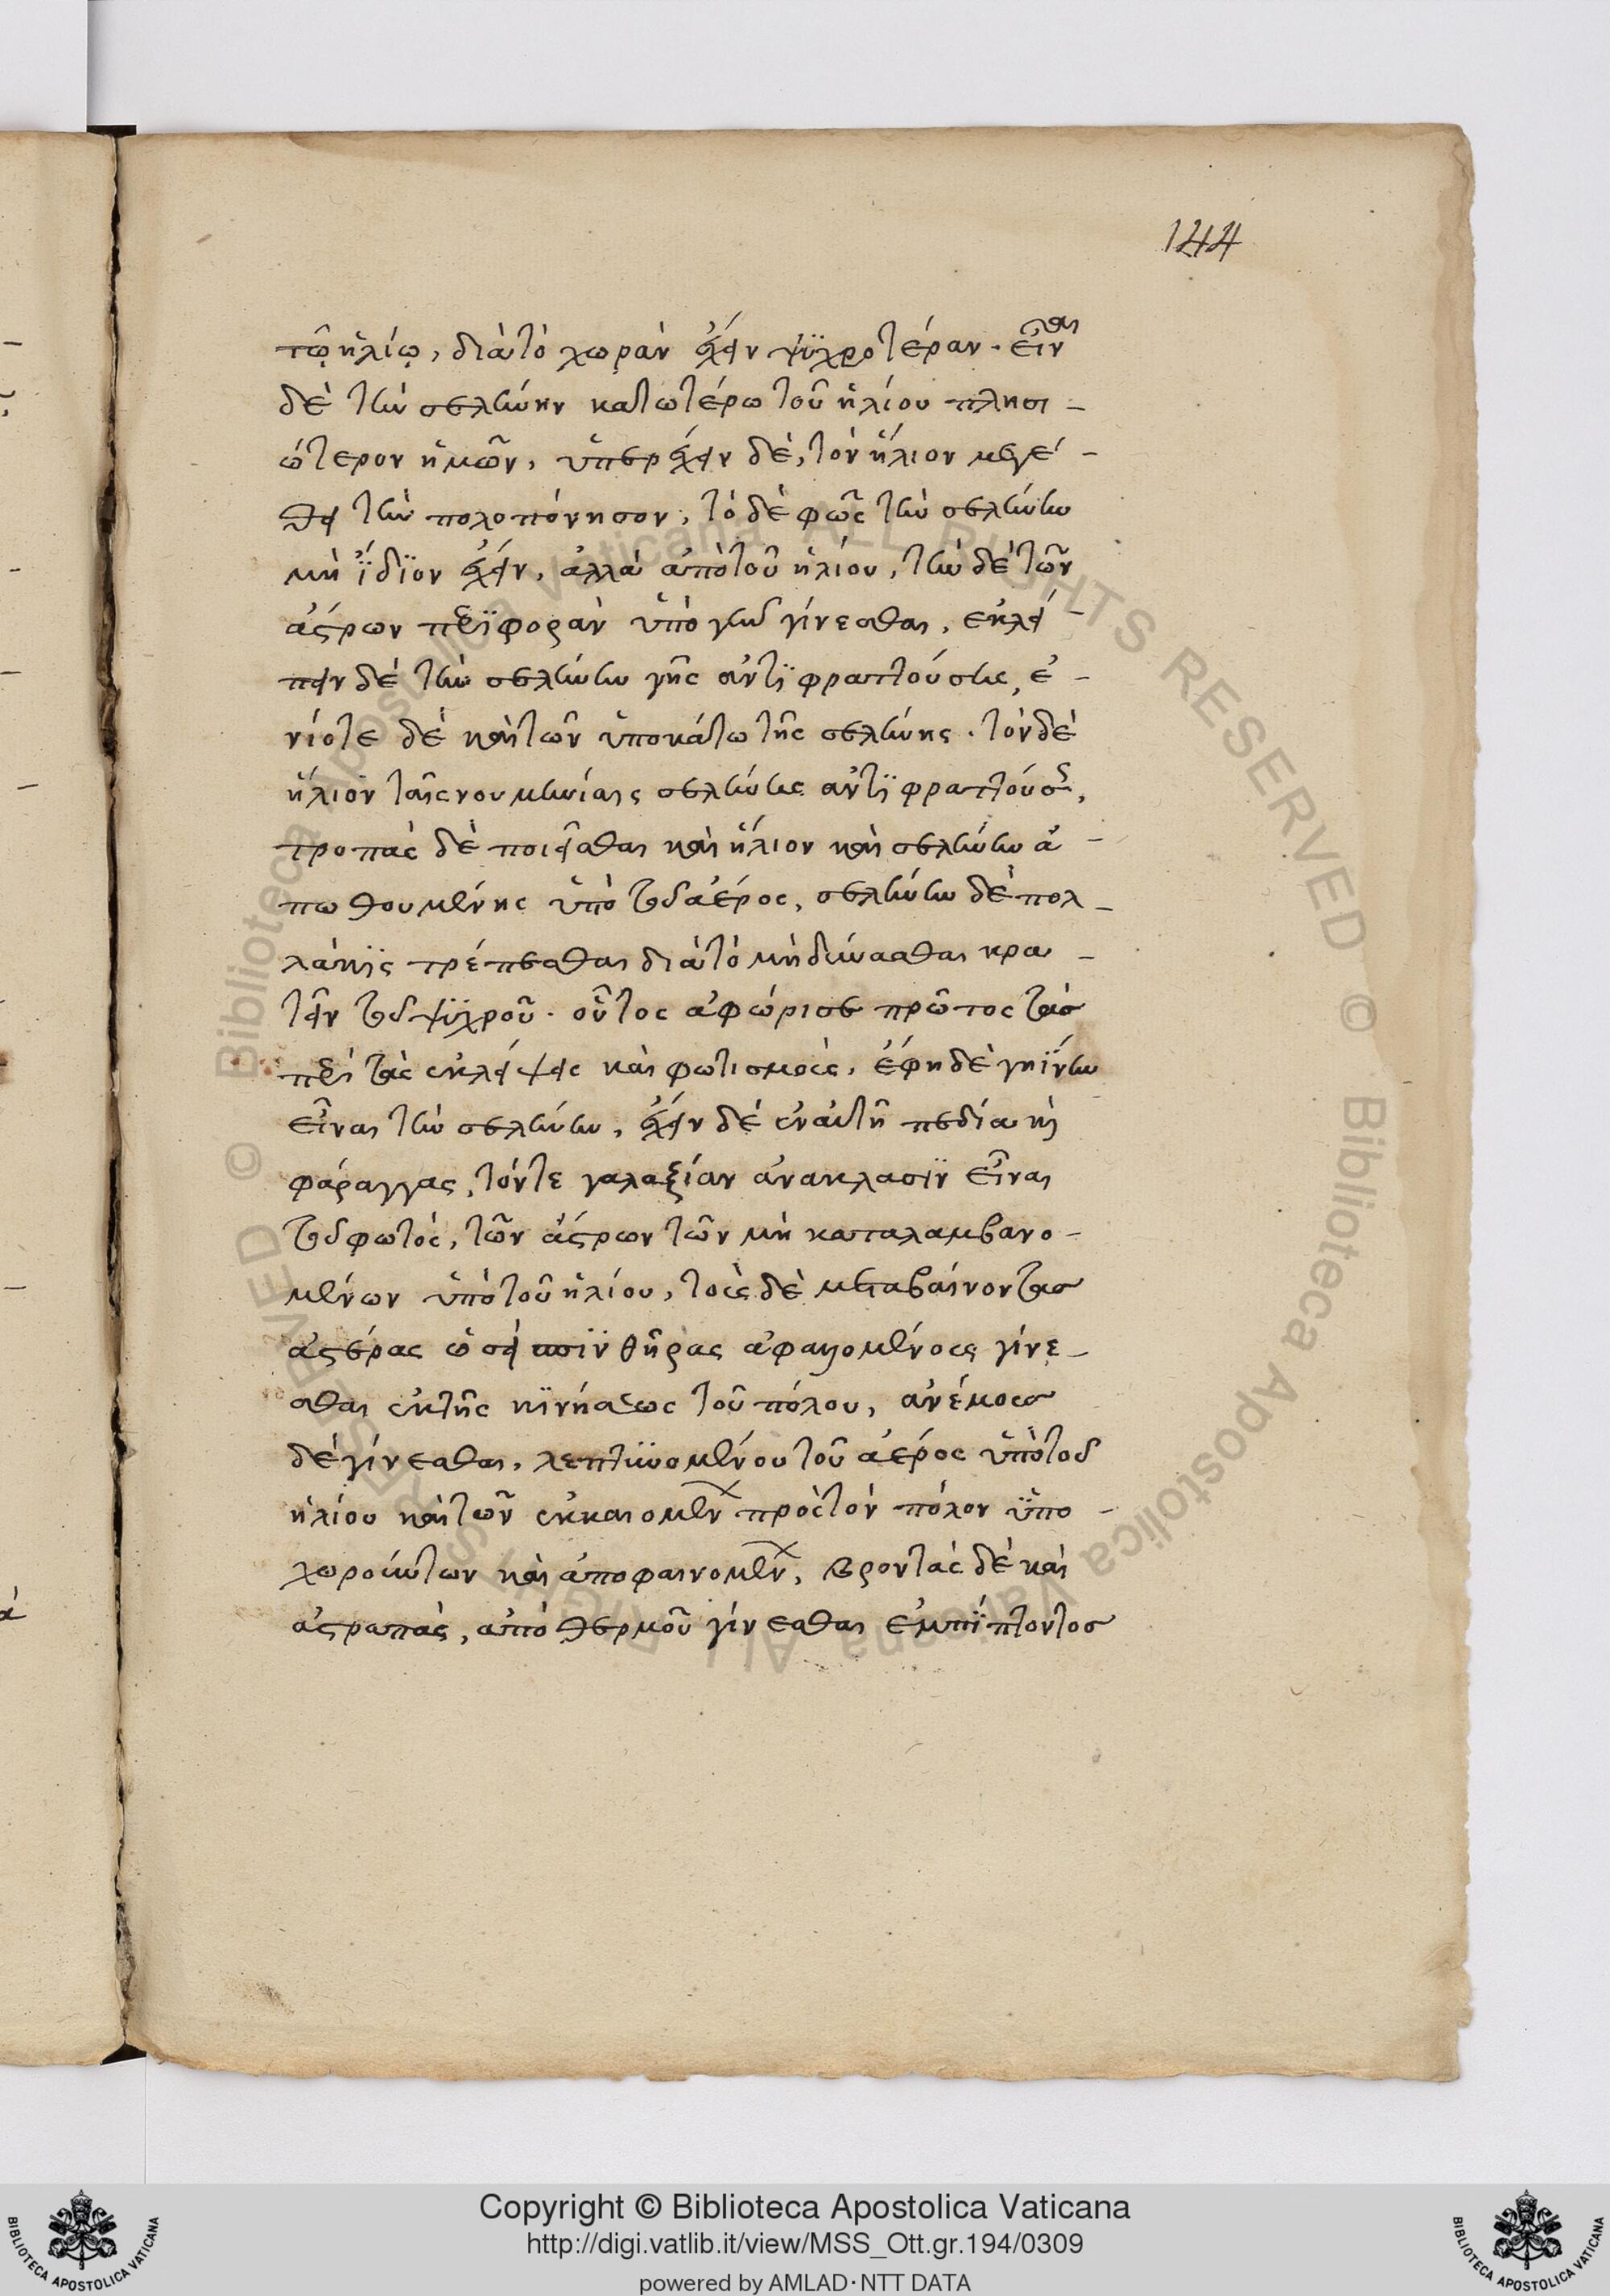 144
τῷ ἡλίῳ, διὰ τὸ χωρὰν ἔχειν ψϋχροτέραν. εἶναι
δὲ τὴν σελήνην κατωτέρω τοῦ ἡλίου πλησι-
ώτερον ἡμῶν, ὑπερέχειν δὲ, τὸν ἥλιον μεγέ-
θει τὴν πολοπόνησον, τὸ δὲ φῶς τὴν σελήνην
μὴ ἴδϊον ἔχειν, ἀλλὰ ἀπὸ τοῦ ἡλίου, τὴν δὲ τῶν
ἄστρων περϊφορὰν ὑπὸ γῆν γίνεσθαι, ἐκλεί-
πειν δὲ τὴν σελήνην γῆς ἀντϊφραττούσης, ἐ-
νίοτε δὲ καὶ τῶν ὑποκάτω τῆς σελήνης. τὸν δὲ
ἥλιον ταῖς νουμηνίαις σελήνης ἀντϊφραττούσης,
τροπὰς δὲ ποιεῖσθαι καὶ ἥλιον καὶ σελήνην ἀ-
πωθουμένης ὑπὸ τοῦ ἀέρος, σελήνην δὲ πολ-
λάκϊς τρέπεσθαι διὰ τὸ μὴ δύνασθαι κρα-
τεῖν τοῦ ψϋχροῦ. οὗτος ἀφώρισε πρῶτος τὰσ
περὶ τὰς ἐκλείψεις καὶ φωτισμοὺς, ἔφη δὲ γηΐνην
εἶναι τὴν σελήνην, ἔχειν δὲ ἐν αὐτῆ πεδία καὶ
φάραγγας, τόν τε γαλαξίαν ἀνακλασϊν εἶναι
τοῦ φωτὸς, τῶν ἄστρων τῶν μὴ καταλαμβανο-
μένων ὑπὸ τοῦ ἡλίου, τοὺς δὲ μεταβαίνοντασ
ἀστέρας ὡσεὶ σπϊνθῆρας ἀφαλλομένους γίνε-
σθαι ἐκ τῆς κϊνήσεως τοῦ πόλου, ἀνέμουσ
δὲ γίνεσθαι, λεπτϋνομένου τοῦ ἀέρος ὑπὸ τοῦ
ἡλίου καὶ τῶν ἐκκαιομένων πρὸς τὸν πόλον ὑπο-
χωρούντων καὶ ἀποφαινομένων, βροντὰς δὲ καὶ
ἀστραπὰς, ἀπὸ θερμοῦ γίνεσθαι ἐμπϊπτοντοσ
Copyright © Biblioteca Apostolica Vaticana
http://digi.vatlib.it/view/MSS_Ott.gr.194/0309
powered by AMLAD·NTT DATA